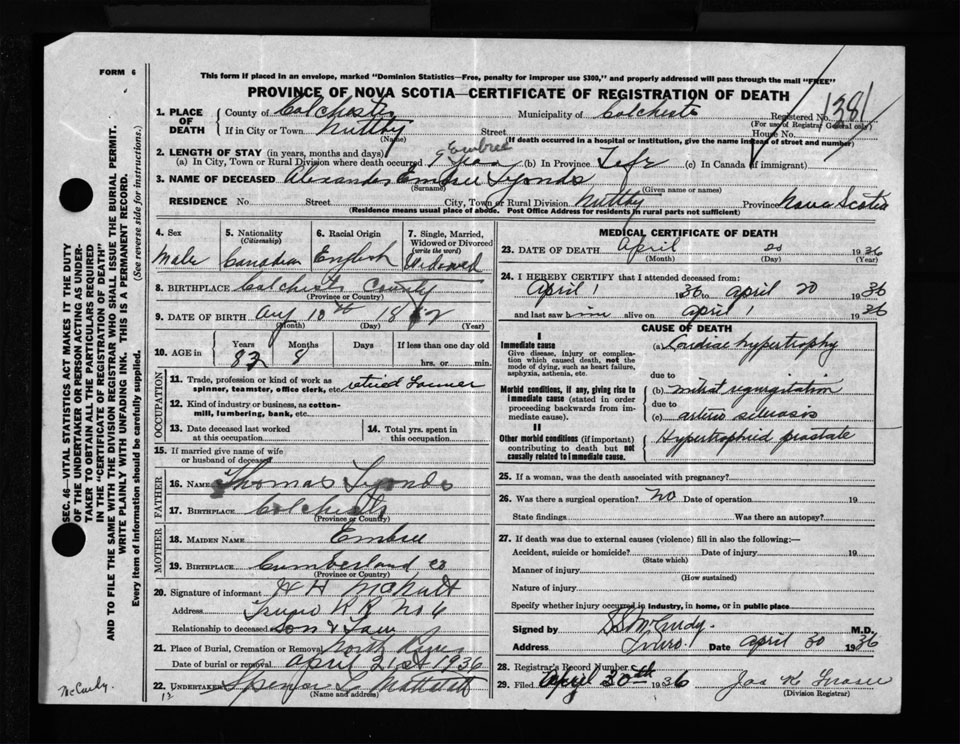 FORM 6
This form if placed in an envelope, marked "Dominion Statistics—Free, penalty for improper use $300," and properly addressed will pass through the mail "FREE"
PROVINCE OF NOVA SCOTIA—CERTIFICATE OF REGISTRATION OF DEATH
1. PLACE OF DEATH
County of Colchester Municipality of Colchester Registered No. 1381
(For use of Registrar General only)
If in City or Town Nuttby Street House No.
(Name) (If death occurred in a hospital or institution, give the name instead of street and number)
2. LENGTH OF STAY (in years, months and days)
(a) In City, Town or Rural Division where death occurred 9 years (b) In Province Life (c) In Canada (if immigrant)
Embree
3. NAME OF DECEASED Alexander Embree Lyonds
(Surname) (Given name or names)
RESIDENCE No. Street City, Town or Rural Division Nuttby Province Nova Scotia
(Residence means usual place of abode. Post Office Address for residents in rural parts not sufficient)
4. Sex
Male
5. Nationality
(Citizenship)
Canadian
6. Racial Origin
English
7. Single, Married, Widowed or Divorced
(write the word)
Widowed
8. BIRTHPLACE Colchester County
(Province or Country)
9. DATE OF BIRTH Aug 12th 18
(Month) (Day) (Year)
10. AGE in
Years Months Days If less than one day old
83 8 hrs. or min.
OCCUPATION
11. Trade, profession or kind of work as spinner, teamster, office clerk, etc. retired Farmer
12. Kind of industry or business, as cotton-mill, lumbering, bank, etc.
13. Date deceased last worked at this occupation
14. Total yrs. spent in this occupation
15. If married give name of wife or husband of deceased
FATHER
16. NAME Thomas Lyonds
17. BIRTHPLACE Colchester
(Province or Country)
MOTHER
18. MAIDEN NAME Embree
19. BIRTHPLACE Cumberland Co
(Province or Country)
20. Signature of informant H H McNutt
Address Truro R R No 6
Relationship to deceased Son & Law
21. Place of Burial, Cremation or Removal North River
Date of burial or removal April 21st 1936
22. UNDERTAKER Spencer L Mattatall
(Name and address)
MEDICAL CERTIFICATE OF DEATH
23. DATE OF DEATH April 20 1936
(Month) (Day) (Year)
24. I HEREBY CERTIFY that I attended deceased from:
April 1 1936 to April 20 1936
and last saw him alive on April 1 1936
CAUSE OF DEATH
I
Immediate cause
Give disease, injury or complication which caused death, not the mode of dying, such as heart failure, asphyxia, asthenia, etc.
(a) Cardiac hypertrophy
due to
Morbid conditions, if any, giving rise to immediate cause (stated in order proceeding backwards from immediate cause).
(b) mitral regurgitation
due to
(c) arterio sclerosis
II
Other morbid conditions (if important) contributing to death but not causally related to immediate cause.
Hypertrophied prostate
25. If a woman, was the death associated with pregnancy?
26. Was there a surgical operation? no Date of operation 19
State findings Was there an autopsy?
27. If death was due to external causes (violence) fill in also the following:—
Accident, suicide or homicide? Date of injury 19
(State which)
Manner of injury
(How sustained)
Nature of injury
Specify whether injury occurred in industry, in home, or in public place
Signed by S S McCurdy M.D.
Address Truro. Date April 30 1936
28. Registrar's Record Number
29. Filed April 30th 1936 Jas K Fraser
(Division Registrar)
SEC. 46—VITAL STATISTICS ACT MAKES IT THE DUTY OF THE UNDERTAKER OR PERSON ACTING AS UNDERTAKER TO OBTAIN ALL THE PARTICULARS REQUIRED IN THE "CERTIFICATE OF REGISTRATION OF DEATH" AND TO FILE THE SAME WITH THE DIVISION REGISTRAR WHO SHALL ISSUE THE BURIAL PERMIT.
WRITE PLAINLY WITH UNFADING INK. THIS IS A PERMANENT RECORD.
Every item of information should be carefully supplied. (See reverse side for instructions.)